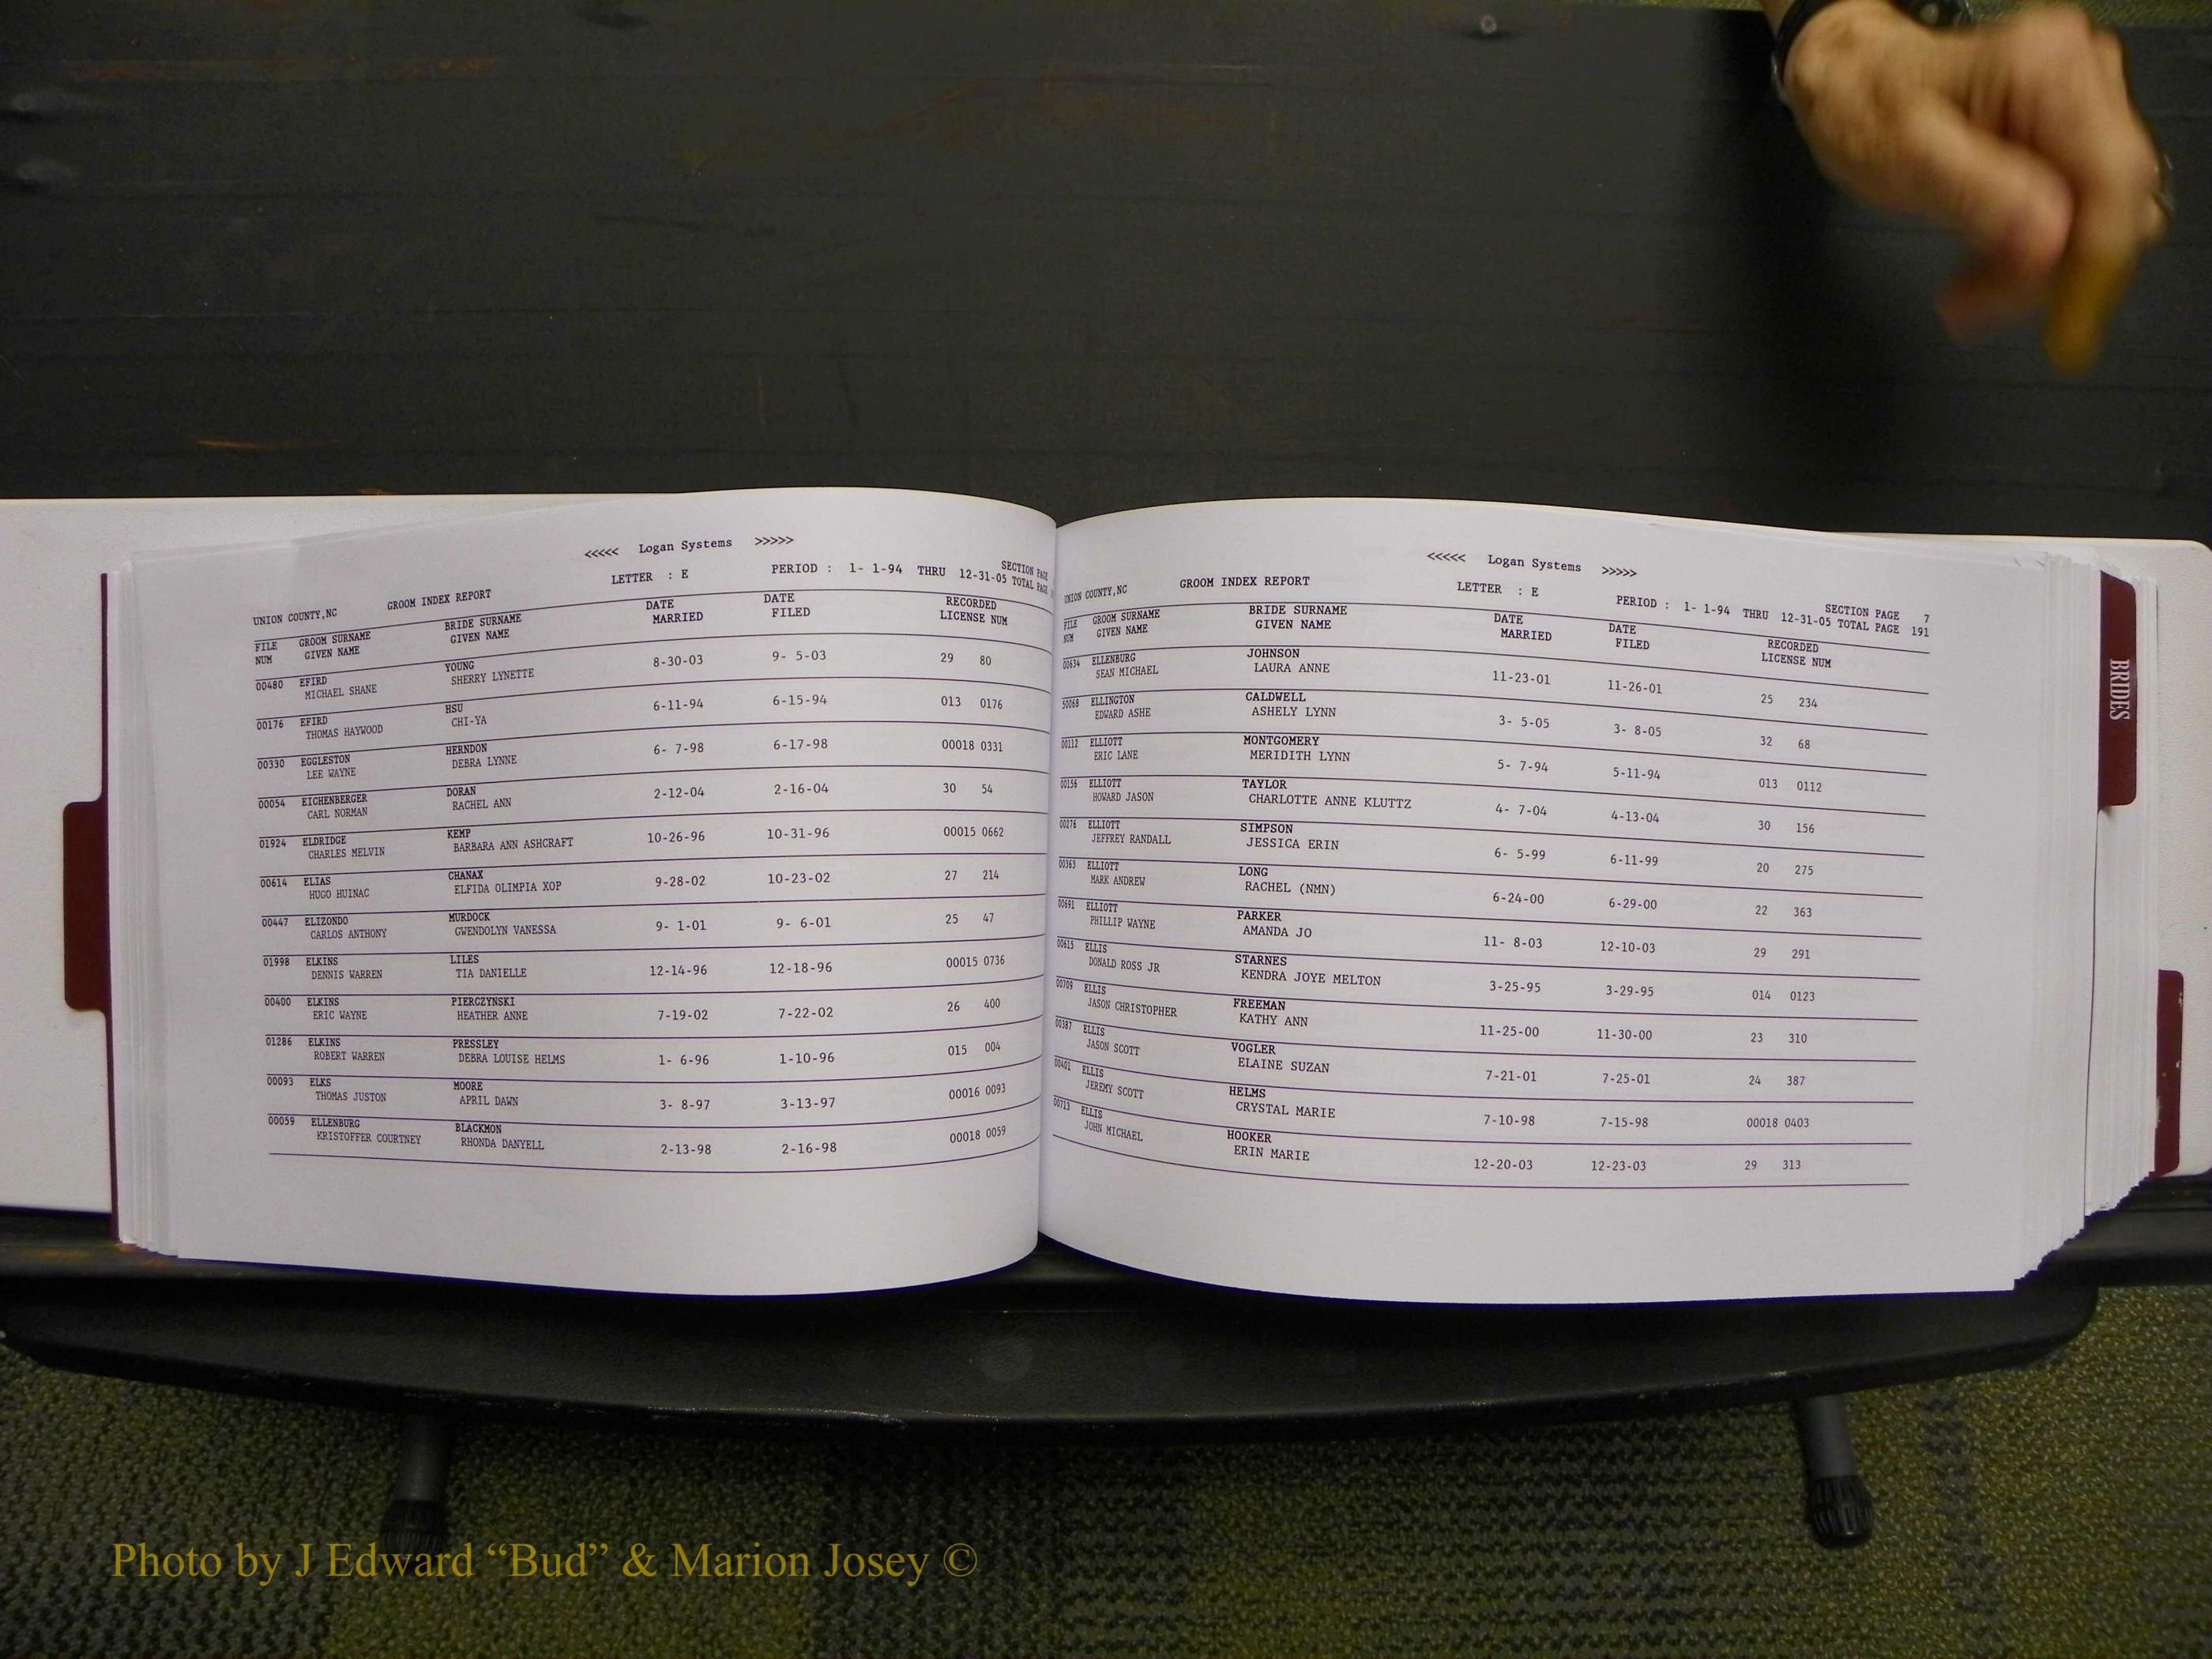 <<<<< Logan Systems >>>>>
UNION COUNTY,NC GROOM INDEX REPORT LETTER : E PERIOD : 1- 1-94 THRU 12-31-05 SECTION PAGE
TOTAL PAGE
FILE GROOM SURNAME BRIDE SURNAME DATE DATE RECORDED
NUM GIVEN NAME GIVEN NAME MARRIED FILED LICENSE NUM
00480 EFIRD YOUNG 8-30-03 9- 5-03 29 80
MICHAEL SHANE SHERRY LYNETTE
00176 EFIRD HSU 6-11-94 6-15-94 013 0176
THOMAS HAYWOOD CHI-YA
00330 EGGLESTON HERNDON 6- 7-98 6-17-98 00018 0331
LEE WAYNE DEBRA LYNNE
00054 EICHENBERGER DORAN 2-12-04 2-16-04 30 54
CARL NORMAN RACHEL ANN
01924 ELDRIDGE KEMP 10-26-96 10-31-96 00015 0662
CHARLES MELVIN BARBARA ANN ASHCRAFT
00614 ELIAS CHANAX 9-28-02 10-23-02 27 214
HUGO HUINAC ELFIDA OLIMPIA XOP
00447 ELIZONDO MURDOCK 9- 1-01 9- 6-01 25 47
CARLOS ANTHONY GWENDOLYN VANESSA
01998 ELKINS LILES 12-14-96 12-18-96 00015 0736
DENNIS WARREN TIA DANIELLE
00400 ELKINS PIERCZYNSKI 7-19-02 7-22-02 26 400
ERIC WAYNE HEATHER ANNE
01286 ELKINS PRESSLEY 1- 6-96 1-10-96 015 004
ROBERT WARREN DEBRA LOUISE HELMS
00093 ELKS MOORE 3- 8-97 3-13-97 00016 0093
THOMAS JUSTON APRIL DAWN
00059 ELLENBURG BLACKMON 2-13-98 2-16-98 00018 0059
KRISTOFFER COURTNEY RHONDA DANYELL
<<<<< Logan Systems >>>>>
UNION COUNTY,NC GROOM INDEX REPORT LETTER : E PERIOD : 1- 1-94 THRU 12-31-05 SECTION PAGE 7
TOTAL PAGE 191
FILE GROOM SURNAME BRIDE SURNAME DATE DATE RECORDED
NUM GIVEN NAME GIVEN NAME MARRIED FILED LICENSE NUM
00634 ELLENBURG JOHNSON 11-23-01 11-26-01 25 234
SEAN MICHAEL LAURA ANNE
50068 ELLINGTON CALDWELL 3- 5-05 3- 8-05 32 68
EDWARD ASHE ASHELY LYNN
00112 ELLIOTT MONTGOMERY 5- 7-94 5-11-94 013 0112
ERIC LANE MERIDITH LYNN
00156 ELLIOTT TAYLOR 4- 7-04 4-13-04 30 156
HOWARD JASON CHARLOTTE ANNE KLUTTZ
00276 ELLIOTT SIMPSON 6- 5-99 6-11-99 20 275
JEFFREY RANDALL JESSICA ERIN
00363 ELLIOTT LONG 6-24-00 6-29-00 22 363
MARK ANDREW RACHEL (NMN)
00691 ELLIOTT PARKER 11- 8-03 12-10-03 29 291
PHILLIP WAYNE AMANDA JO
00615 ELLIS STARNES 3-25-95 3-29-95 014 0123
DONALD ROSS JR KENDRA JOYE MELTON
00709 ELLIS FREEMAN 11-25-00 11-30-00 23 310
JASON CHRISTOPHER KATHY ANN
00387 ELLIS VOGLER 7-21-01 7-25-01 24 387
JASON SCOTT ELAINE SUZAN
00401 ELLIS HELMS 7-10-98 7-15-98 00018 0403
JEREMY SCOTT CRYSTAL MARIE
00713 ELLIS HOOKER 12-20-03 12-23-03 29 313
JOHN MICHAEL ERIN MARIE
BRIDES
Photo by J Edward “Bud” & Marion Josey ©